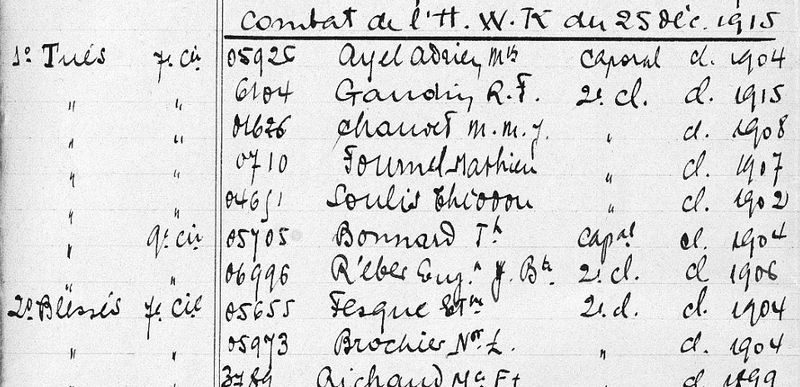 Combat de l'H. W. K du 25 Déc. 1915
1º Tués 7e Cie 05925 Ayel Adrien Mis caporal cl. 1904
" " 6104 Gaudin R. F. 2e cl. cl. 1915
" " 01626 Chauvet M. M. J. " cl. 1908
" " 0710 Fournel Mathieu " cl. 1907
" " 04651 Soulis " cl. 1902
" 9e Cie 05705 Bonnard Th capal cl. 1904
" " 06996 Réber Eug. J. Bte 2e cl. cl 1906
2º Blessés 7e Cie 05655 Fesque Etne 2e cl. cl. 1904
" " 05973 Brochier " cl. 1904
3789 Richaud cl 1899